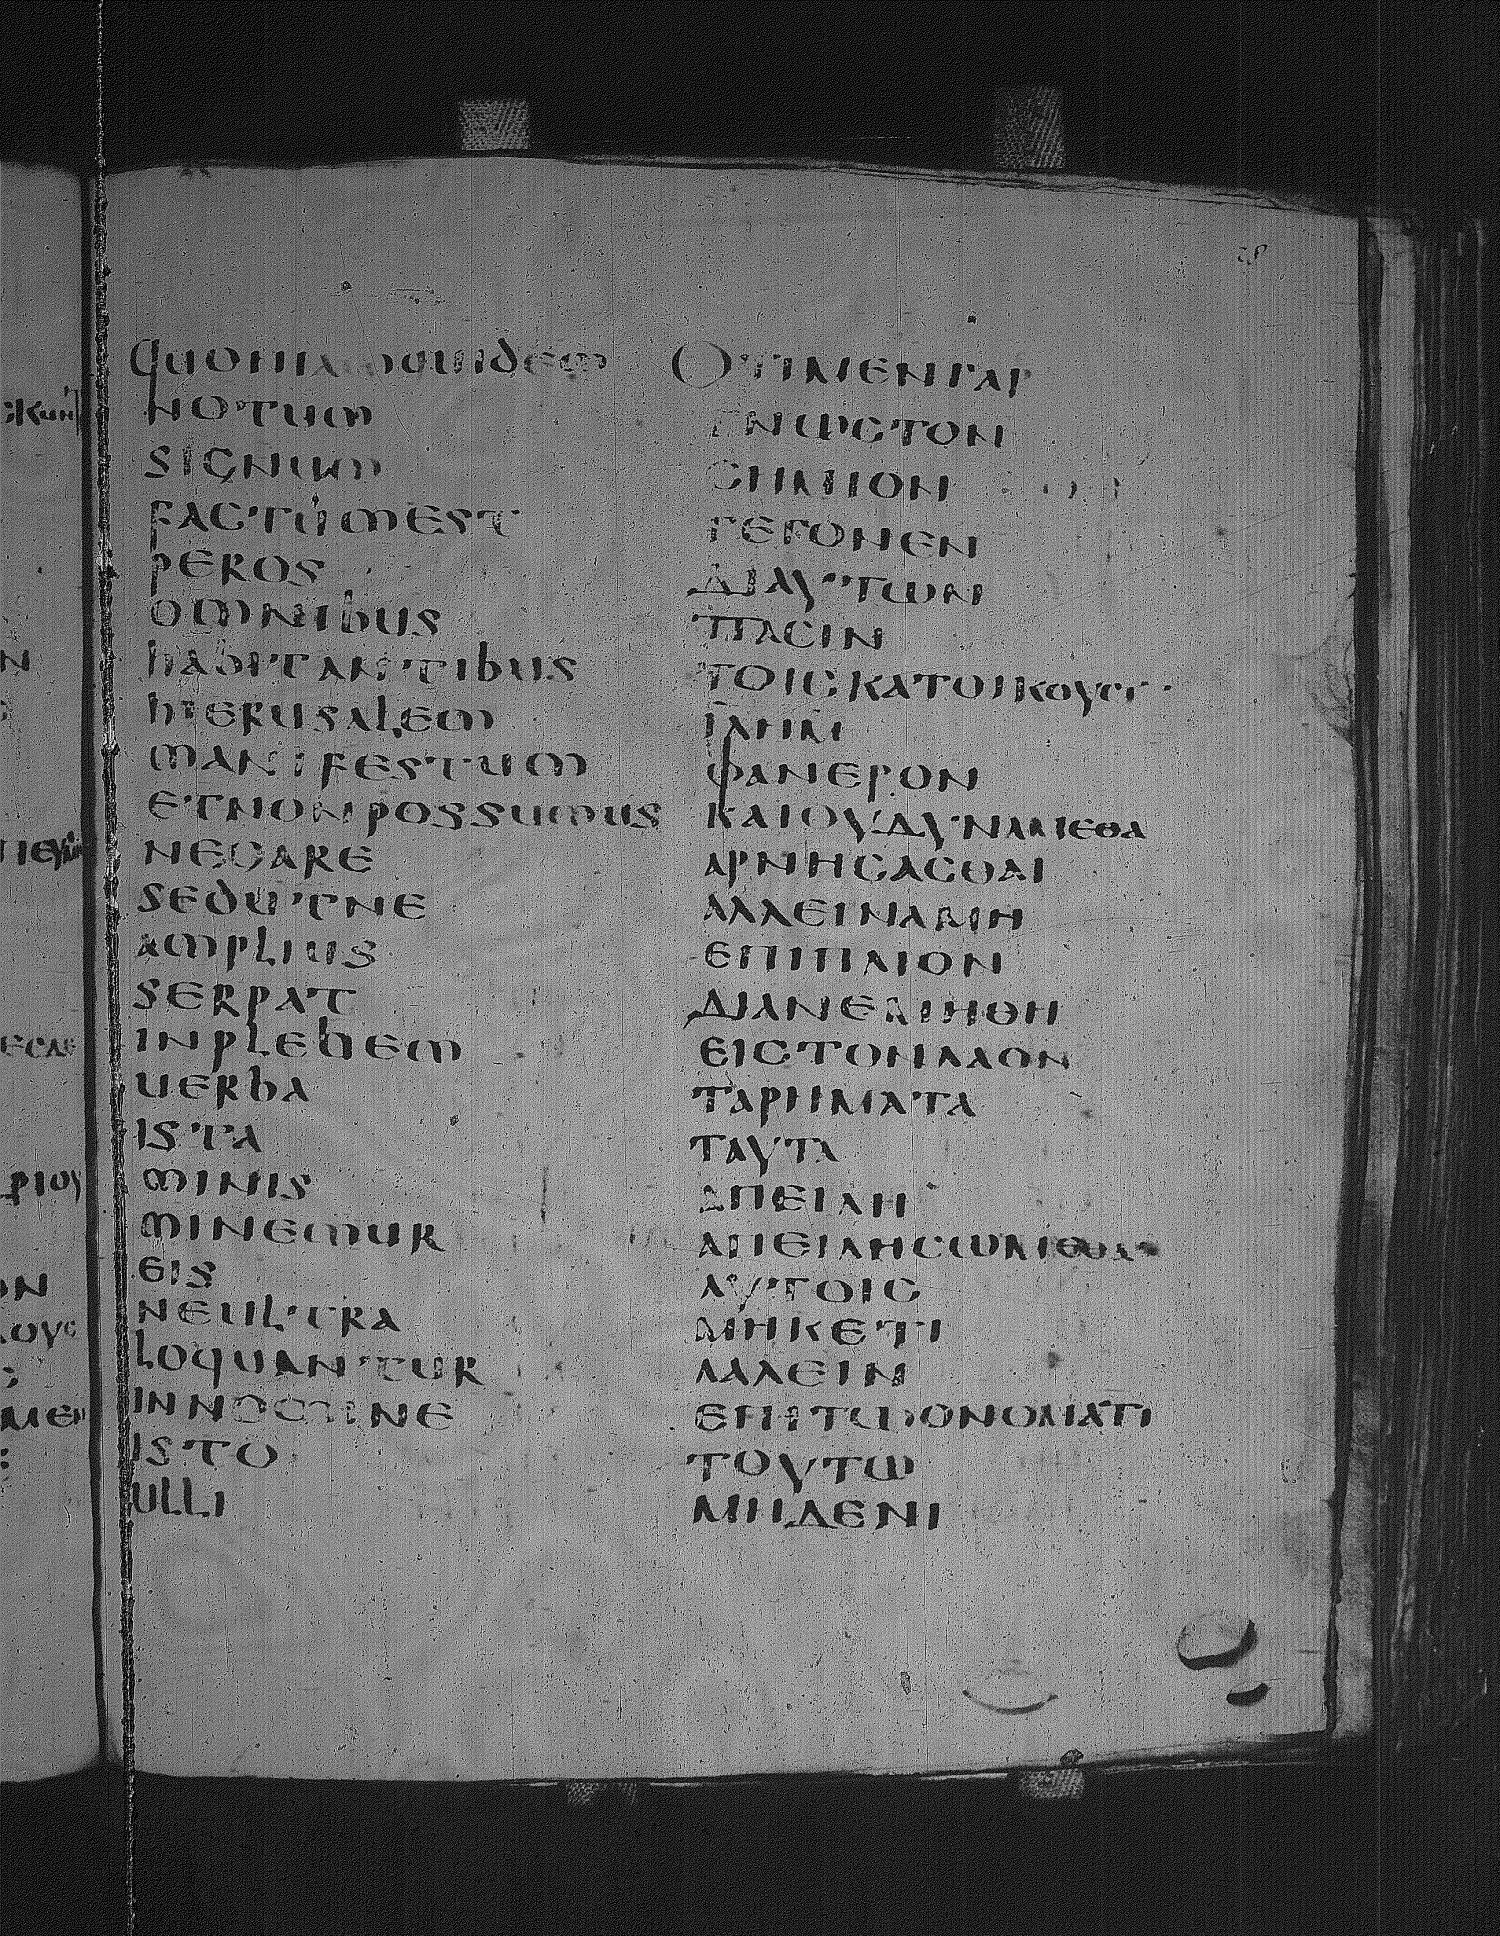 quoniamquidem
notum
signum
factumest
peros
omnibus
habitantibus
hierusalem
manifestum
etnonpossumus
negare
sedutne
amplius
serpat
inplebem
uerba
ista
minis
minemur
eis
neultra
loquantur
innomine
isto
ulli
ΟΤΙΜΕΝΓΑΡ
ΓΝΩϹΤΟΝ
ϹΗΜΙΟΝ
ΓΕΓΟΝΕΝ
ΔΙΑΥΤΩΝ
ΠΑϹΙΝ
ΤΟΙϹΚΑΤΟΙΚΟΥϹΙ
ΙΛΗΜ
ΦΑΝΕΡΟΝ
ΚΑΙΟΥΔΥΝΑΜΕΘΑ
ΑΡΝΗϹΑϹΘΑΙ
ΑΛΛΕΙΝΑΜΗ
ΕΠΙΠΛΙΟΝ
ΔΙΑΝΕΜΗΘΗ
ΕΙϹΤΟΝΛΑΟΝ
ΤΑΡΗΜΑΤΑ
ΤΑΥΤΑ
ΑΠΕΙΛΗ
ΑΠΕΙΛΗϹΩΜΕΘΑ
ΑΥΤΟΙϹ
ΜΗΚΕΤΙ
ΛΑΛΕΙΝ
ΕΠΙΤΩΟΝΟΜΑΤΙ
ΤΟΥΤΩ
ΜΗΔΕΝΙ